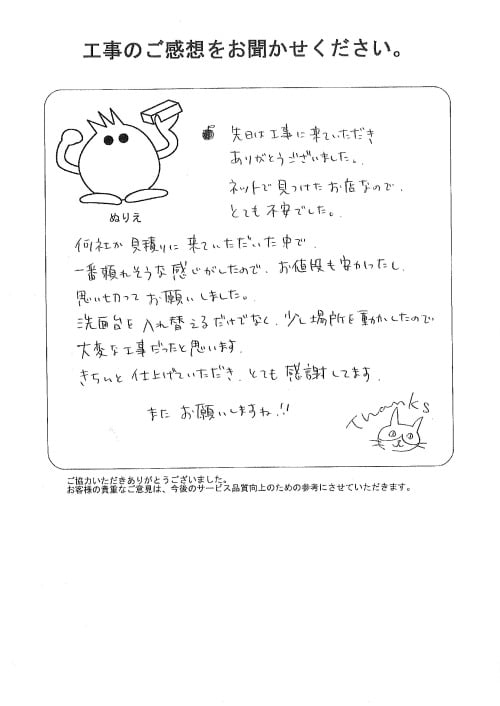 工事のご感想をお聞かせください。
先日は工事に来ていただき
ありがとうございました。
ネットで見つけたお店なので、
とても不安でした。
ぬりえ
何社か見積りに来ていただいた中で、
一番頼れそうな感じがしたので、お値段も安かったし、
思い切ってお願いしました。
洗面台を入れ替えるだけでなく、少し場所を動かしたので
大変な工事だったと思います。
きちんと仕上げていただき、とても感謝してます。
またお願いしますね!!
Thanks
ご協力いただきありがとうございました。
お客様の貴重なご意見は、今後のサービス品質向上のための参考にさせていただきます。